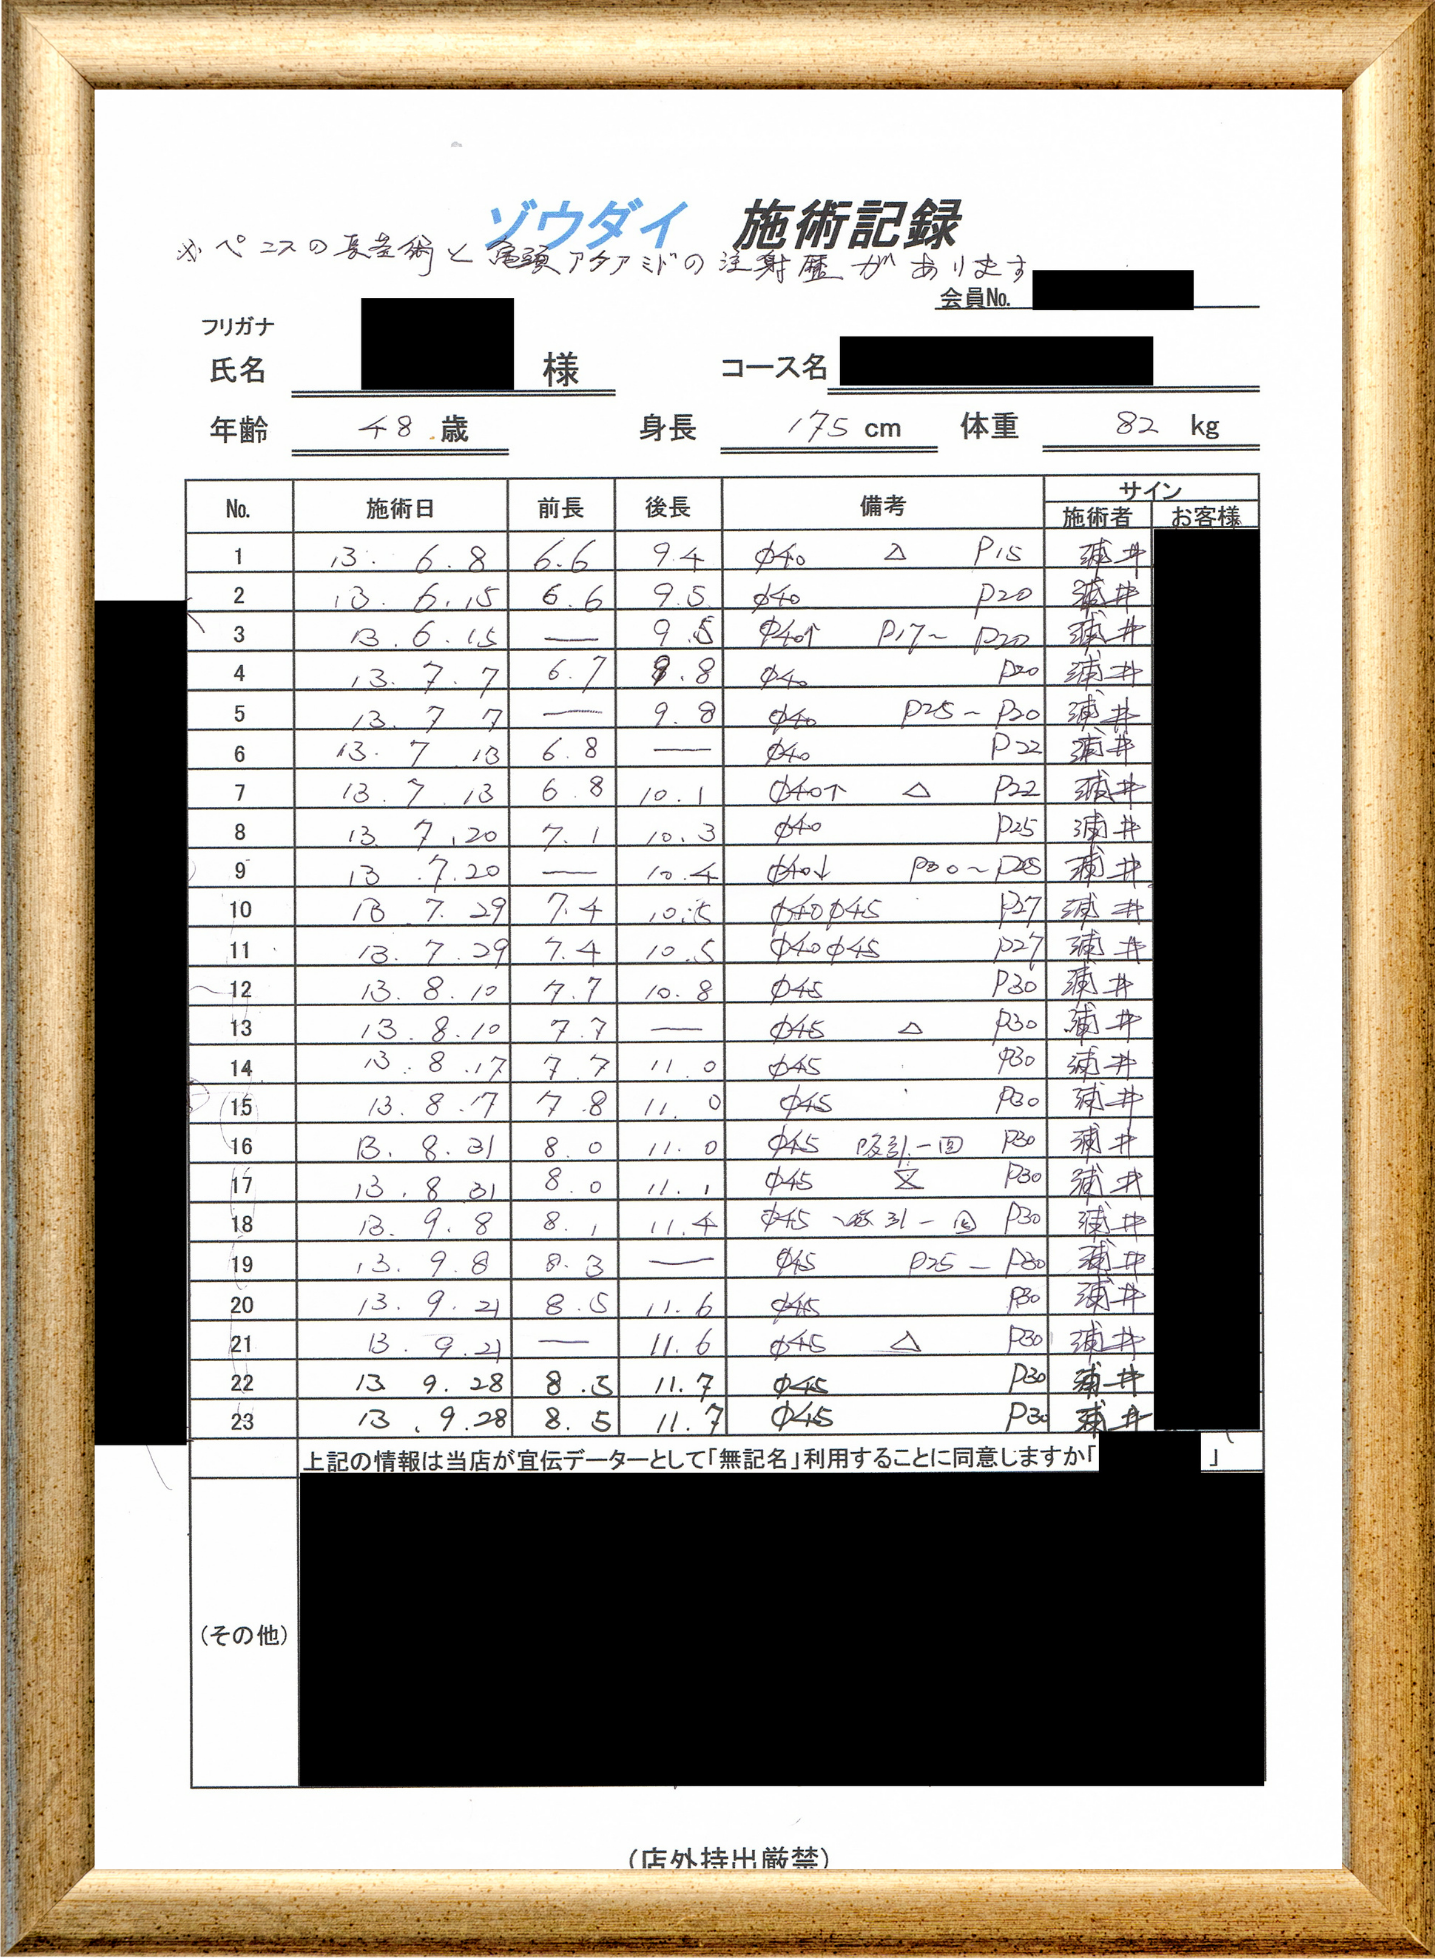 ゾウダイ 施術記録
※ペニスの長茎術と亀頭アクアミドの注射歴があります
会員No.
フリガナ
氏名 様 コース名
年齢 48 歳 身長 175 cm 体重 82 kg
No. 施術日 前長 後長 備考 サイン
施術者 お客様
1 13. 6.8 6.6 9.4 φ40 △ P15 浦井
2 13. 6.15 6.6 9.5 φ40 P20 浦井
3 13.6.15 — 9.5 φ40↑ P17~ P20 浦井
4 13.7.7 6.7 9.8 φ40 P20 浦井
5 13.7 7 — 9.8 φ40 P25~P20 浦井
6 13.7 13 6.8 — φ40 P22 浦井
7 13.7.13 6.8 10.1 φ40↑ △ P22 浦井
8 13 7.20 7.1 10.3 φ40 P25 浦井
9 13 .7.20 — 10.4 φ40↓ P30~P25 浦井
10 13 7.29 7.4 10.5 φ40φ45 P27 浦井
11 13.7.29 7.4 10.5 φ40φ45 P27 浦井
12 13.8.10 7.7 10.8 φ45 P30 浦井
13 13.8.10 7.7 — φ45 △ P30 浦井
14 13.8.17 7.7 11.0 φ45 P30 浦井
15 13.8.17 7.8 11.0 φ45 P30 浦井
16 13.8.31 8.0 11.0 φ45 吸引一回 P30 浦井
17 13.8 31 8.0 11.1 φ45 P30 浦井
18 13.9.8 8.1 11.4 φ45 吸引一回 P30 浦井
19 13.9.8 8.3 — φ45 P25 — P30 浦井
20 13.9.21 8.5 11.6 φ45 P30 浦井
21 13.9.21 — 11.6 φ45 △ P30 浦井
22 13 9.28 8.5 11.7 φ45 P30 浦井
23 13.9.28 8.5 11.7 φ45 P30 浦井
上記の情報は当店が宜伝データーとして「無記名」利用することに同意しますか「 」
(その他)
(店外持出厳禁)